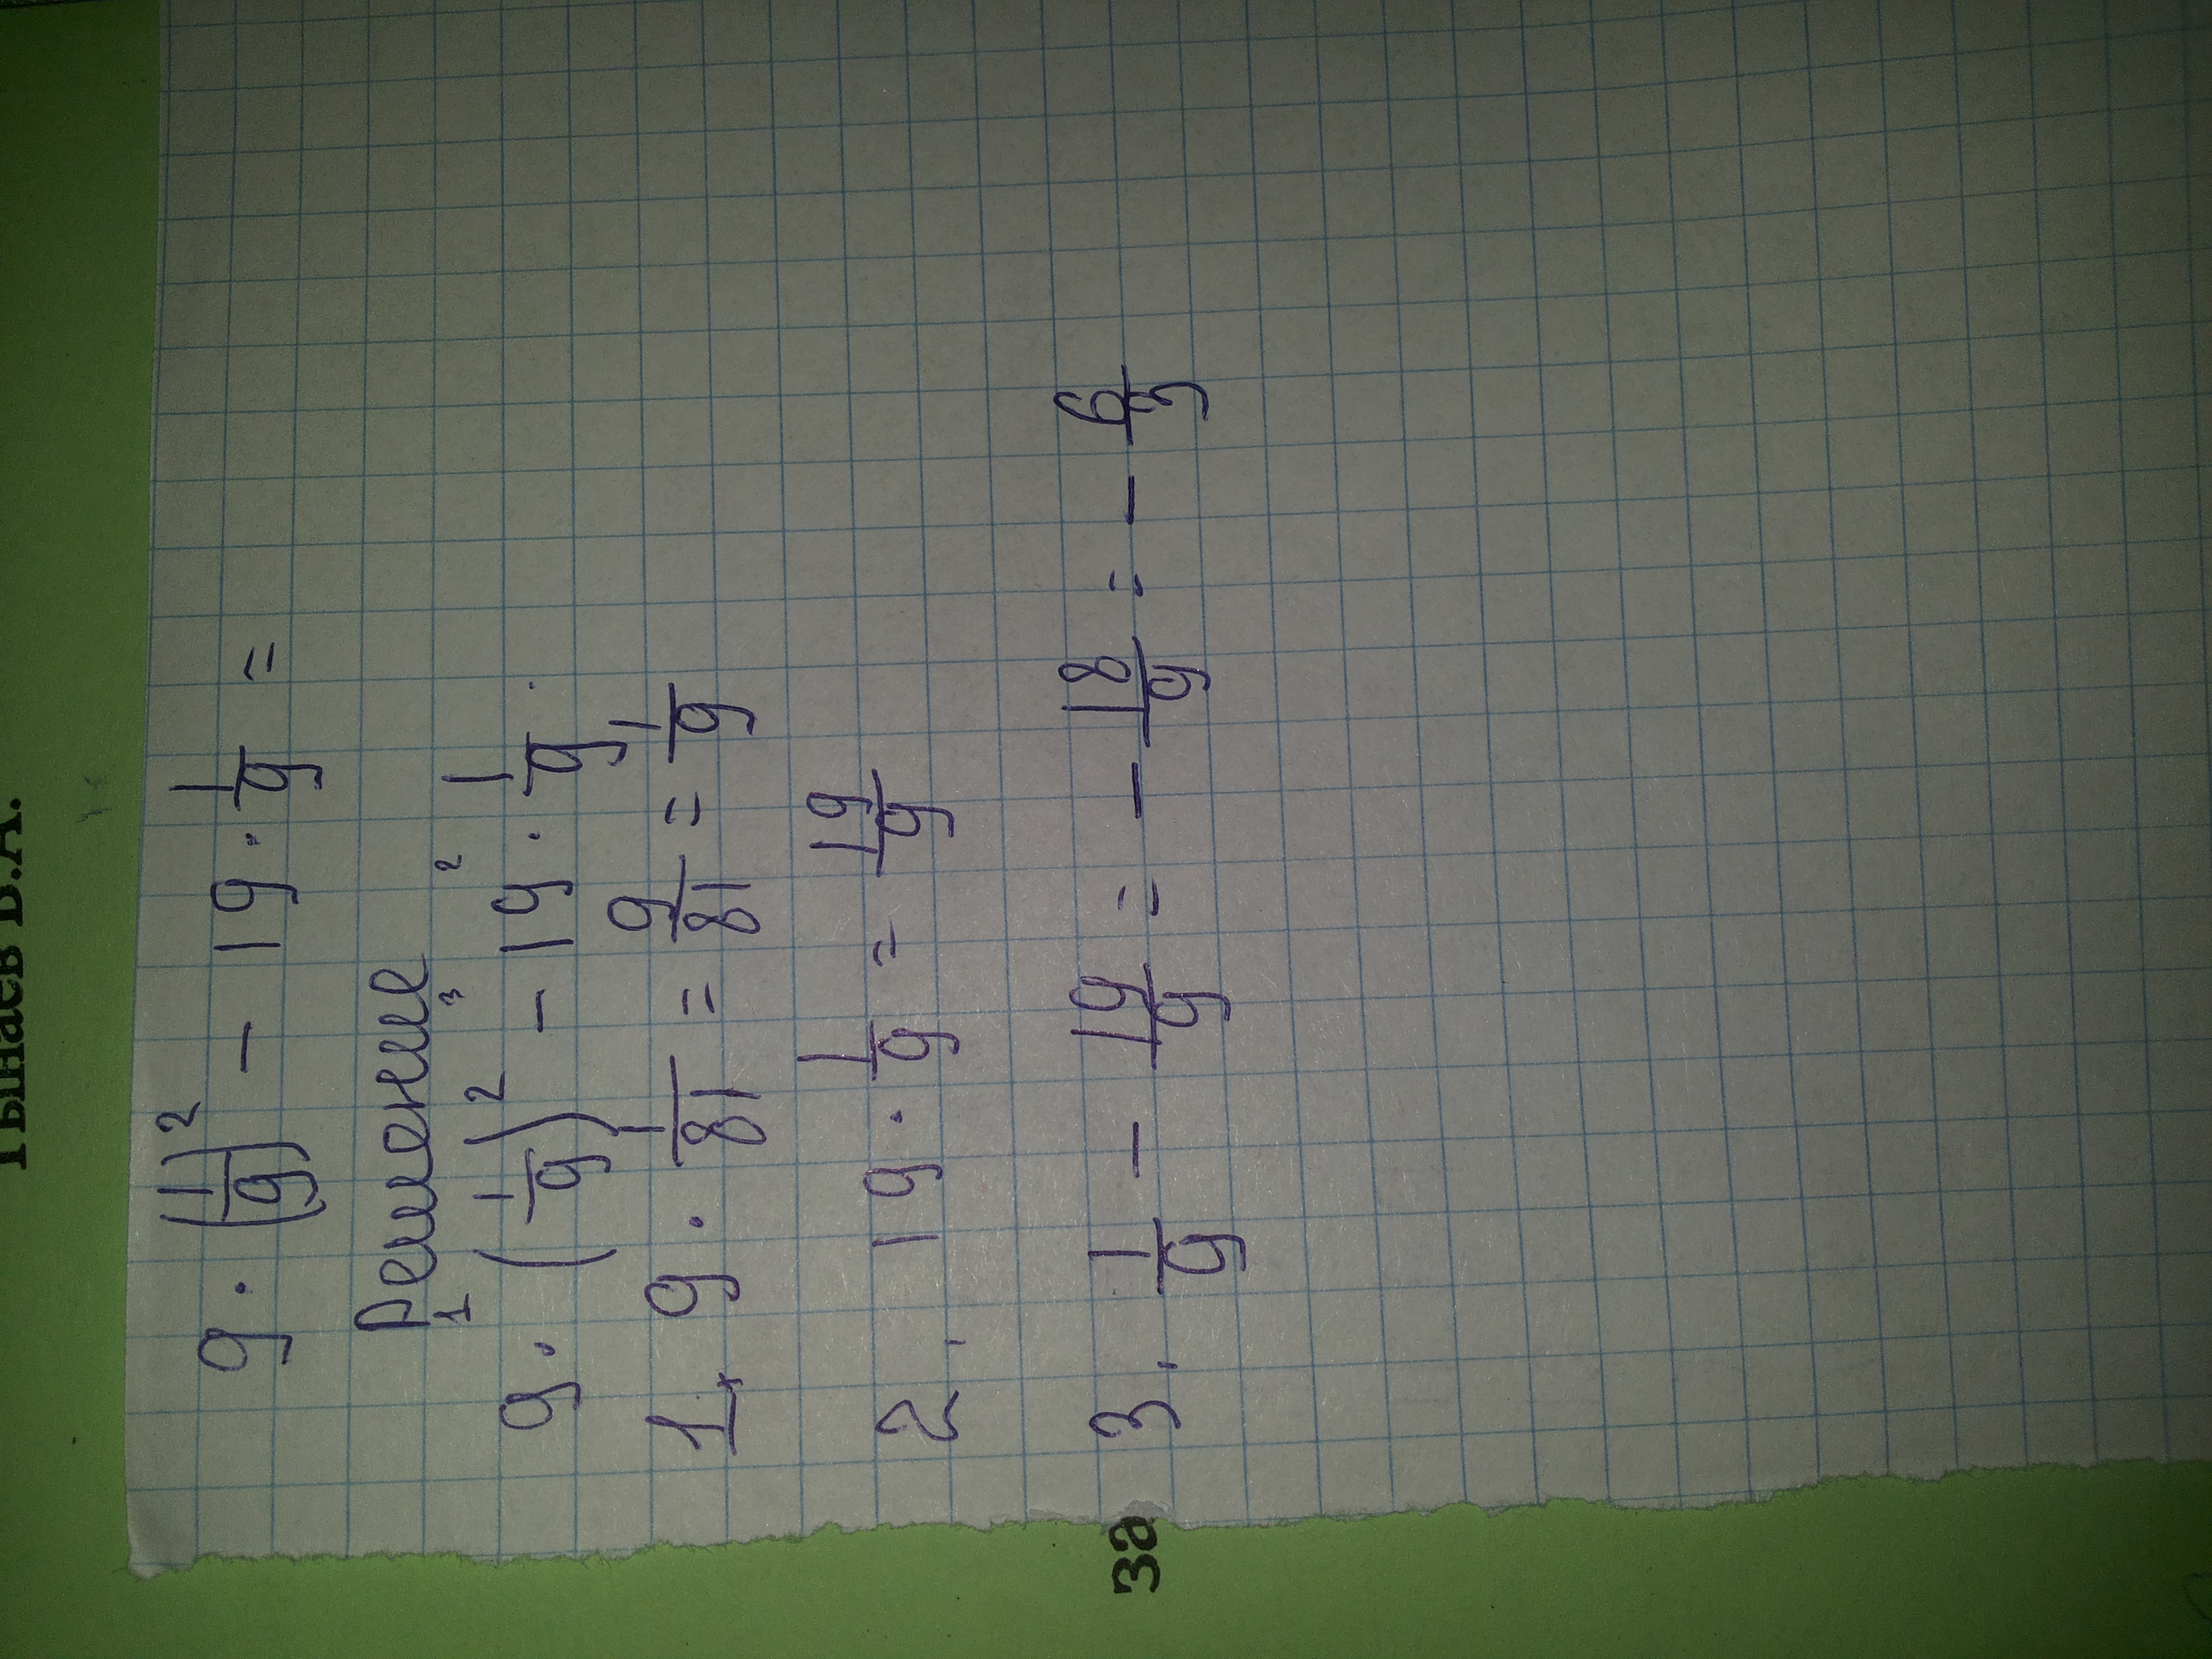 9 · (1/9)² − 19 · 1/9 =
Решение
1 3 2
9 · (1/9)² − 19 · 1/9
1. 9 · 1/81 = 9/81 = 1/9
2. 19 · 1/9 = 19/9
3. 1/9 − 19/9 = − 18/9 = − 6/3
за